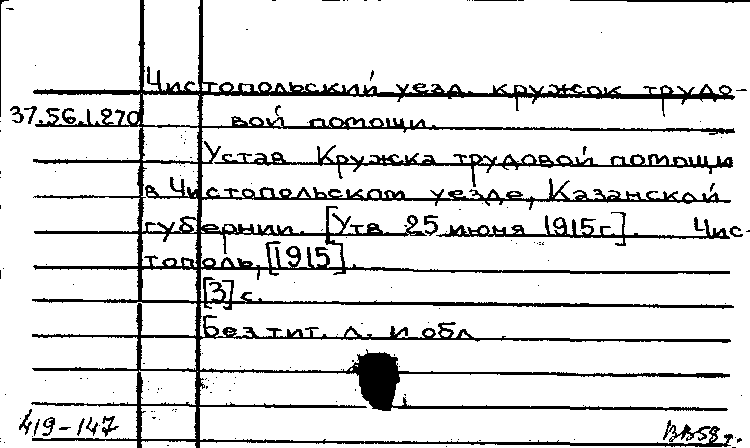 Чистопольский уезд. кружок трудо-
37.56.1.270 вой помощи.
Устав Кружка трудовой помощи
в Чистопольском уезде, Казанской
губернии. [Утв. 25 июня 1915г]. Чис-
тополь, [1915].
[3] с.
Без тит. л. и обл
419-147